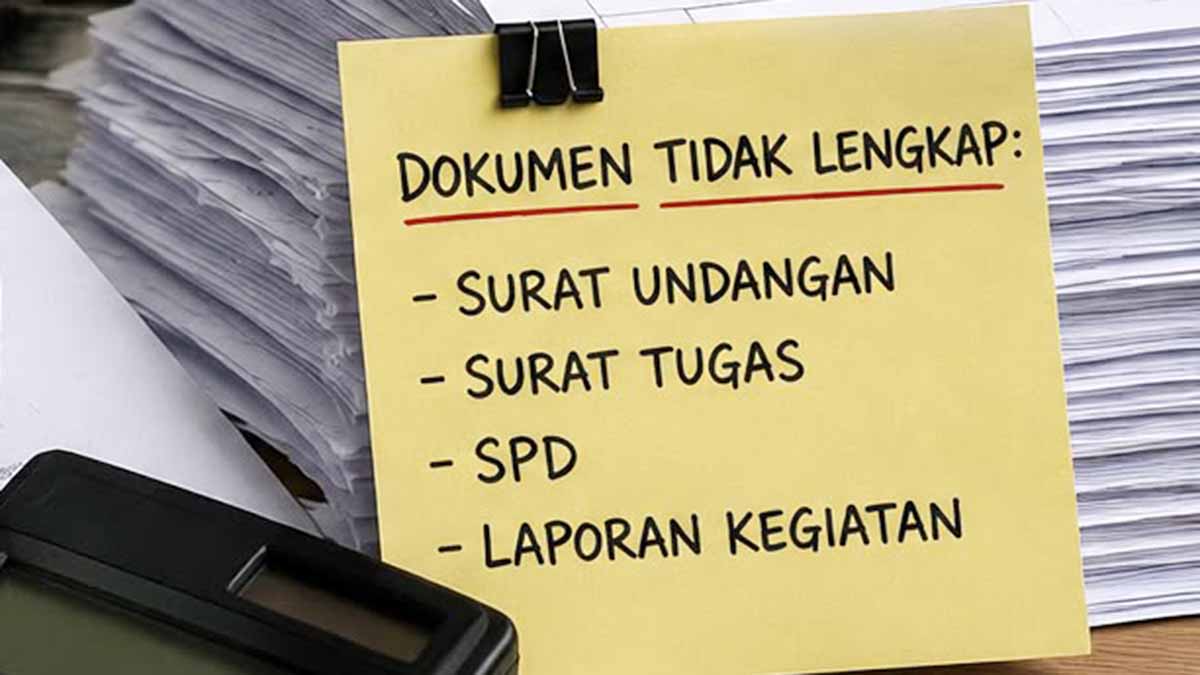 DOKUMEN TIDAK LENGKAP:
- SURAT UNDANGAN
- SURAT TUGAS
- SPD
- LAPORAN KEGIATAN